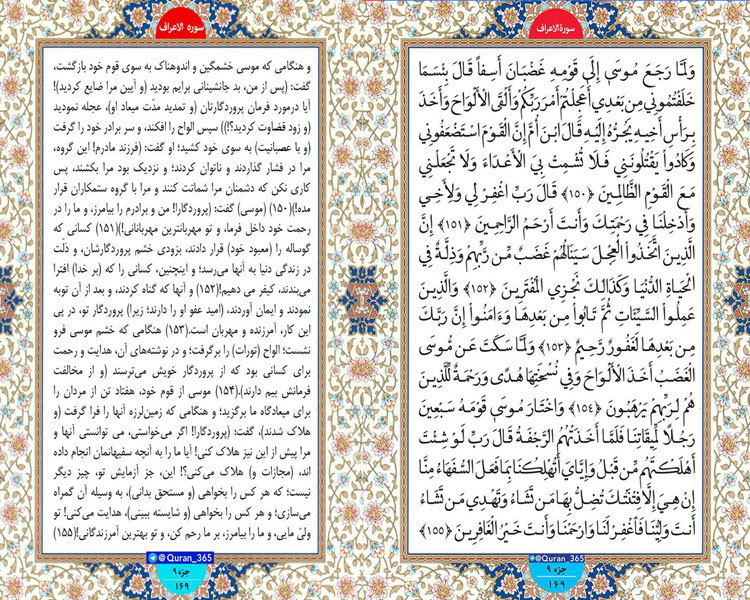 سورة الاعراف
وَلَمَّا رَجَعَ مُوسَىٰ إِلَىٰ قَوْمِهِ غَضْبَانَ أَسِفًا قَالَ بِئْسَمَا
خَلَفْتُمُونِي مِن بَعْدِي أَعَجِلْتُمْ أَمْرَ رَبِّكُمْ وَأَلْقَى الْأَلْوَاحَ وَأَخَذَ
بِرَأْسِ أَخِيهِ يَجُرُّهُ إِلَيْهِ قَالَ ابْنَ أُمَّ إِنَّ الْقَوْمَ اسْتَضْعَفُونِي
وَكَادُوا يَقْتُلُونَنِي فَلَا تُشْمِتْ بِيَ الْأَعْدَاءَ وَلَا تَجْعَلْنِي
مَعَ الْقَوْمِ الظَّالِمِينَ ﴿١٥٠﴾ قَالَ رَبِّ اغْفِرْ لِي وَلِأَخِي
وَأَدْخِلْنَا فِي رَحْمَتِكَ وَأَنتَ أَرْحَمُ الرَّاحِمِينَ ﴿١٥١﴾ إِنَّ
الَّذِينَ اتَّخَذُوا الْعِجْلَ سَيَنَالُهُمْ غَضَبٌ مِّن رَّبِّهِمْ وَذِلَّةٌ فِي
الْحَيَاةِ الدُّنْيَا وَكَذَٰلِكَ نَجْزِي الْمُفْتَرِينَ ﴿١٥٢﴾ وَالَّذِينَ
عَمِلُوا السَّيِّئَاتِ ثُمَّ تَابُوا مِن بَعْدِهَا وَءَامَنُوا إِنَّ رَبَّكَ
مِن بَعْدِهَا لَغَفُورٌ رَّحِيمٌ ﴿١٥٣﴾ وَلَمَّا سَكَتَ عَن مُّوسَى
الْغَضَبُ أَخَذَ الْأَلْوَاحَ وَفِي نُسْخَتِهَا هُدًى وَرَحْمَةٌ لِّلَّذِينَ
هُمْ لِرَبِّهِمْ يَرْهَبُونَ ﴿١٥٤﴾ وَاخْتَارَ مُوسَىٰ قَوْمَهُ سَبْعِينَ
رَجُلًا لِّمِيقَاتِنَا فَلَمَّا أَخَذَتْهُمُ الرَّجْفَةُ قَالَ رَبِّ لَوْ شِئْتَ
أَهْلَكْتَهُم مِّن قَبْلُ وَإِيَّايَ أَتُهْلِكُنَا بِمَا فَعَلَ السُّفَهَاءُ مِنَّا
إِنْ هِيَ إِلَّا فِتْنَتُكَ تُضِلُّ بِهَا مَن تَشَاءُ وَتَهْدِي مَن تَشَاءُ
أَنتَ وَلِيُّنَا فَاغْفِرْ لَنَا وَارْحَمْنَا وَأَنتَ خَيْرُ الْغَافِرِينَ ﴿١٥٥﴾
@Quran_365
جزء ۹
۱۶۹
سوره الاعراف
و هنگامی که موسی خشمگین و اندوهناک به سوی قوم خود بازگشت،
گفت: (پس از من، بد جانشینانی برایم بودید (و آیین مرا ضایع کردید)!
آیا درمورد فرمان پروردگارتان (و تمدید مدّت میعاد او)، عجله نمودید
(و زود قضاوت کردید؟!)) سپس الواح را افکند، و سر برادر خود را گرفت
(و با عصبانیت) به سوی خود کشید؛ او گفت: (فرزند مادرم! این گروه،
مرا در فشار گذاردند و ناتوان کردند؛ و نزدیک بود مرا بکشند، پس
کاری نکن که دشمنان مرا شماتت کنند و مرا با گروه ستمکاران قرار
مده!)(۱۵۰) (موسی) گفت: (پروردگارا! من و برادرم را بیامرز، و ما را در
رحمت خود داخل فرما، و تو مهربانترین مهربانانی!)(۱۵۱) کسانی که
گوساله را (معبود خود) قرار دادند، بزودی خشم پروردگارشان، و ذلّت
در زندگی دنیا به آنها می‌رسد؛ و اینچنین، کسانی را که (بر خدا) افترا
می‌بندند، کیفر می دهیم!(۱۵۲) و آنها که گناه کردند، و بعد از آن توبه
نمودند و ایمان آوردند، (امید عفو او را دارند؛ زیرا) پروردگار تو، در پی
این کار، آمرزنده و مهربان است.(۱۵۳) هنگامی که خشم موسی فرو
نشست؛ الواح (تورات) را برگرفت؛ و در نوشته‌های آن، هدایت و رحمت
برای کسانی بود که از پروردگار خویش می‌ترسند (و از مخالفت
فرمانش بیم دارند).(۱۵۴) موسی از قوم خود، هفتاد تن از مردان را
برای میعادگاه ما برگزید؛ و هنگامی که زمین‌لرزه آنها را فرا گرفت (و
هلاک شدند)، گفت: (پروردگارا! اگر می‌خواستی، می توانستی آنها و
مرا پیش از این نیز هلاک کنی! آیا ما را به آنچه سفیهانمان انجام داده
اند، (مجازات و) هلاک می‌کنی؟! این، جز آزمایش تو، چیز دیگر
نیست؛ که هر کس را بخواهی (و مستحق بدانی)، به وسیله آن گمراه
می‌سازی؛ و هر کس را بخواهی (و شایسته ببینی)، هدایت می‌کنی! تو
ولیّ مایی، و ما را بیامرز، بر ما رحم کن، و تو بهترین آمرزندگانی!(۱۵۵)
@Quran_365
جزء ۹
۱۶۹